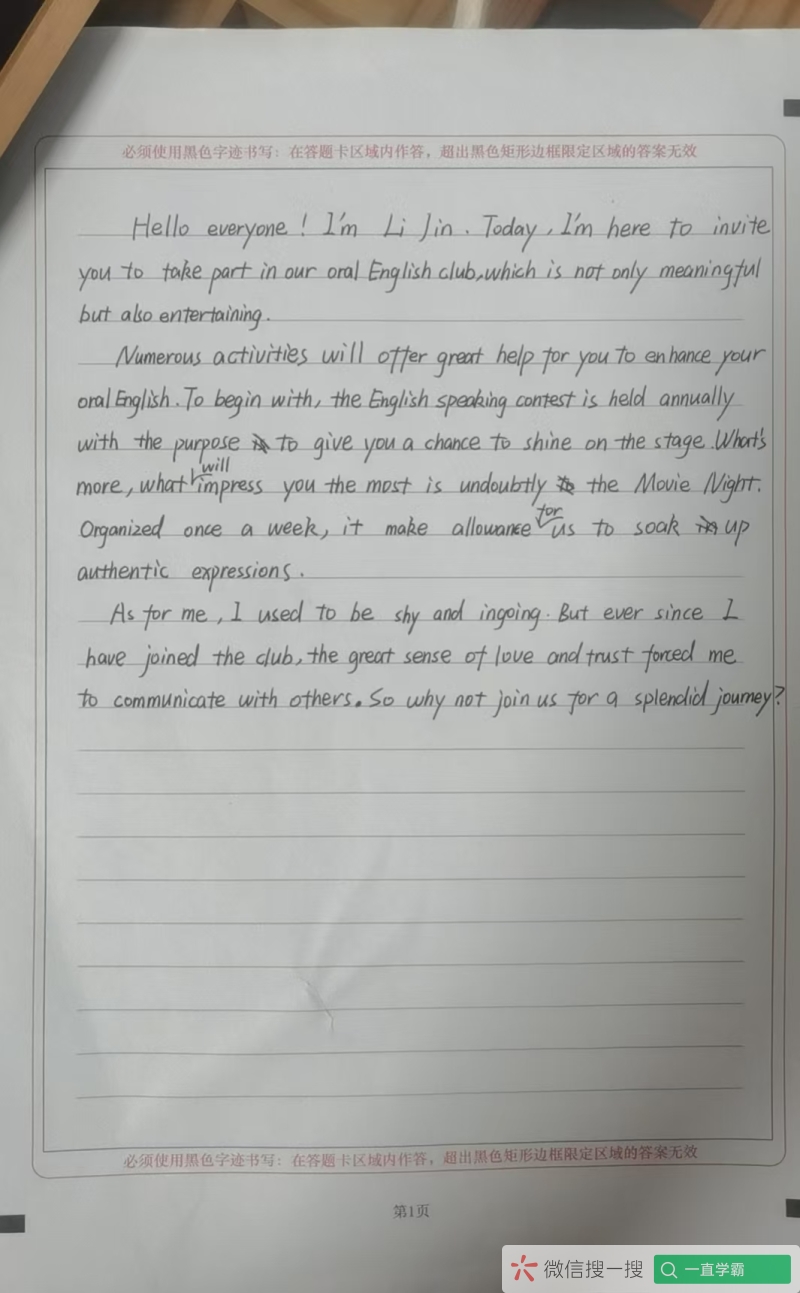 必须使用黑色字迹书写：在答题卡区域内作答，超出黑色矩形边框限定区域的答案无效
Hello everyone! I'm Li Jin. Today, I'm here to invite
you to take part in our oral English club, which is not only meaningful
but also entertaining.
Numerous activities will offer great help for you to enhance your
oral English. To begin with, the English speaking contest is held annually
with the purpose to give you a chance to shine on the stage. What's
more, what will impress you the most is undoubtly the Movie Night.
Organized once a week, it make allowance for us to soak up
authentic expressions.
As for me, I used to be shy and ingoing. But ever since I
have joined the club, the great sense of love and trust forced me
to communicate with others. So why not join us for a splendid journey?
必须使用黑色字迹书写：在答题卡区域内作答，超出黑色矩形边框限定区域的答案无效
第1页
微信搜一搜 一直学霸